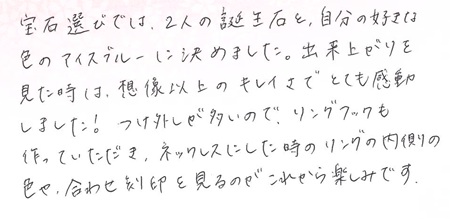 宝石選びでは、2人の誕生石と、自分の好きな
色のアイスブルーに決めました。出来上がりを
見た時は、想像以上のキレイさでとても感動
しました！ つけ外しが多いので、リングフックも
作っていただき、ネックレスにした時のリングの内側の
色や、合わせ刻印を見るのがこれから楽しみです。